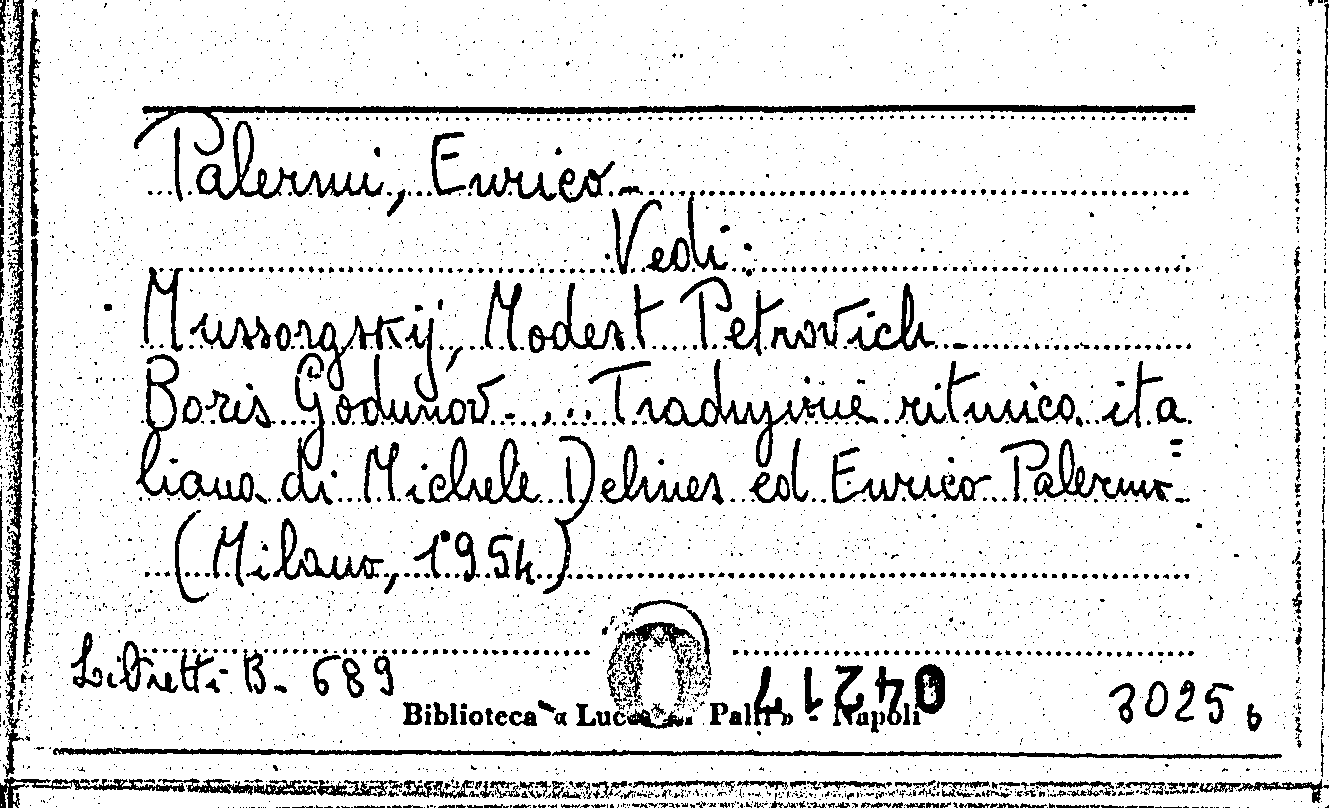 Palermi, Enrico -
Vedi:
Mussorgskij, Modest Petrovich -
Boris Godunov - ... Traduzione ritmica ita=
liana di Michele Delines ed Enrico Palermi -
(Milano, 1954)
Libretti B. 689
Biblioteca « Lucchesi Palli » - Napoli
3025 b